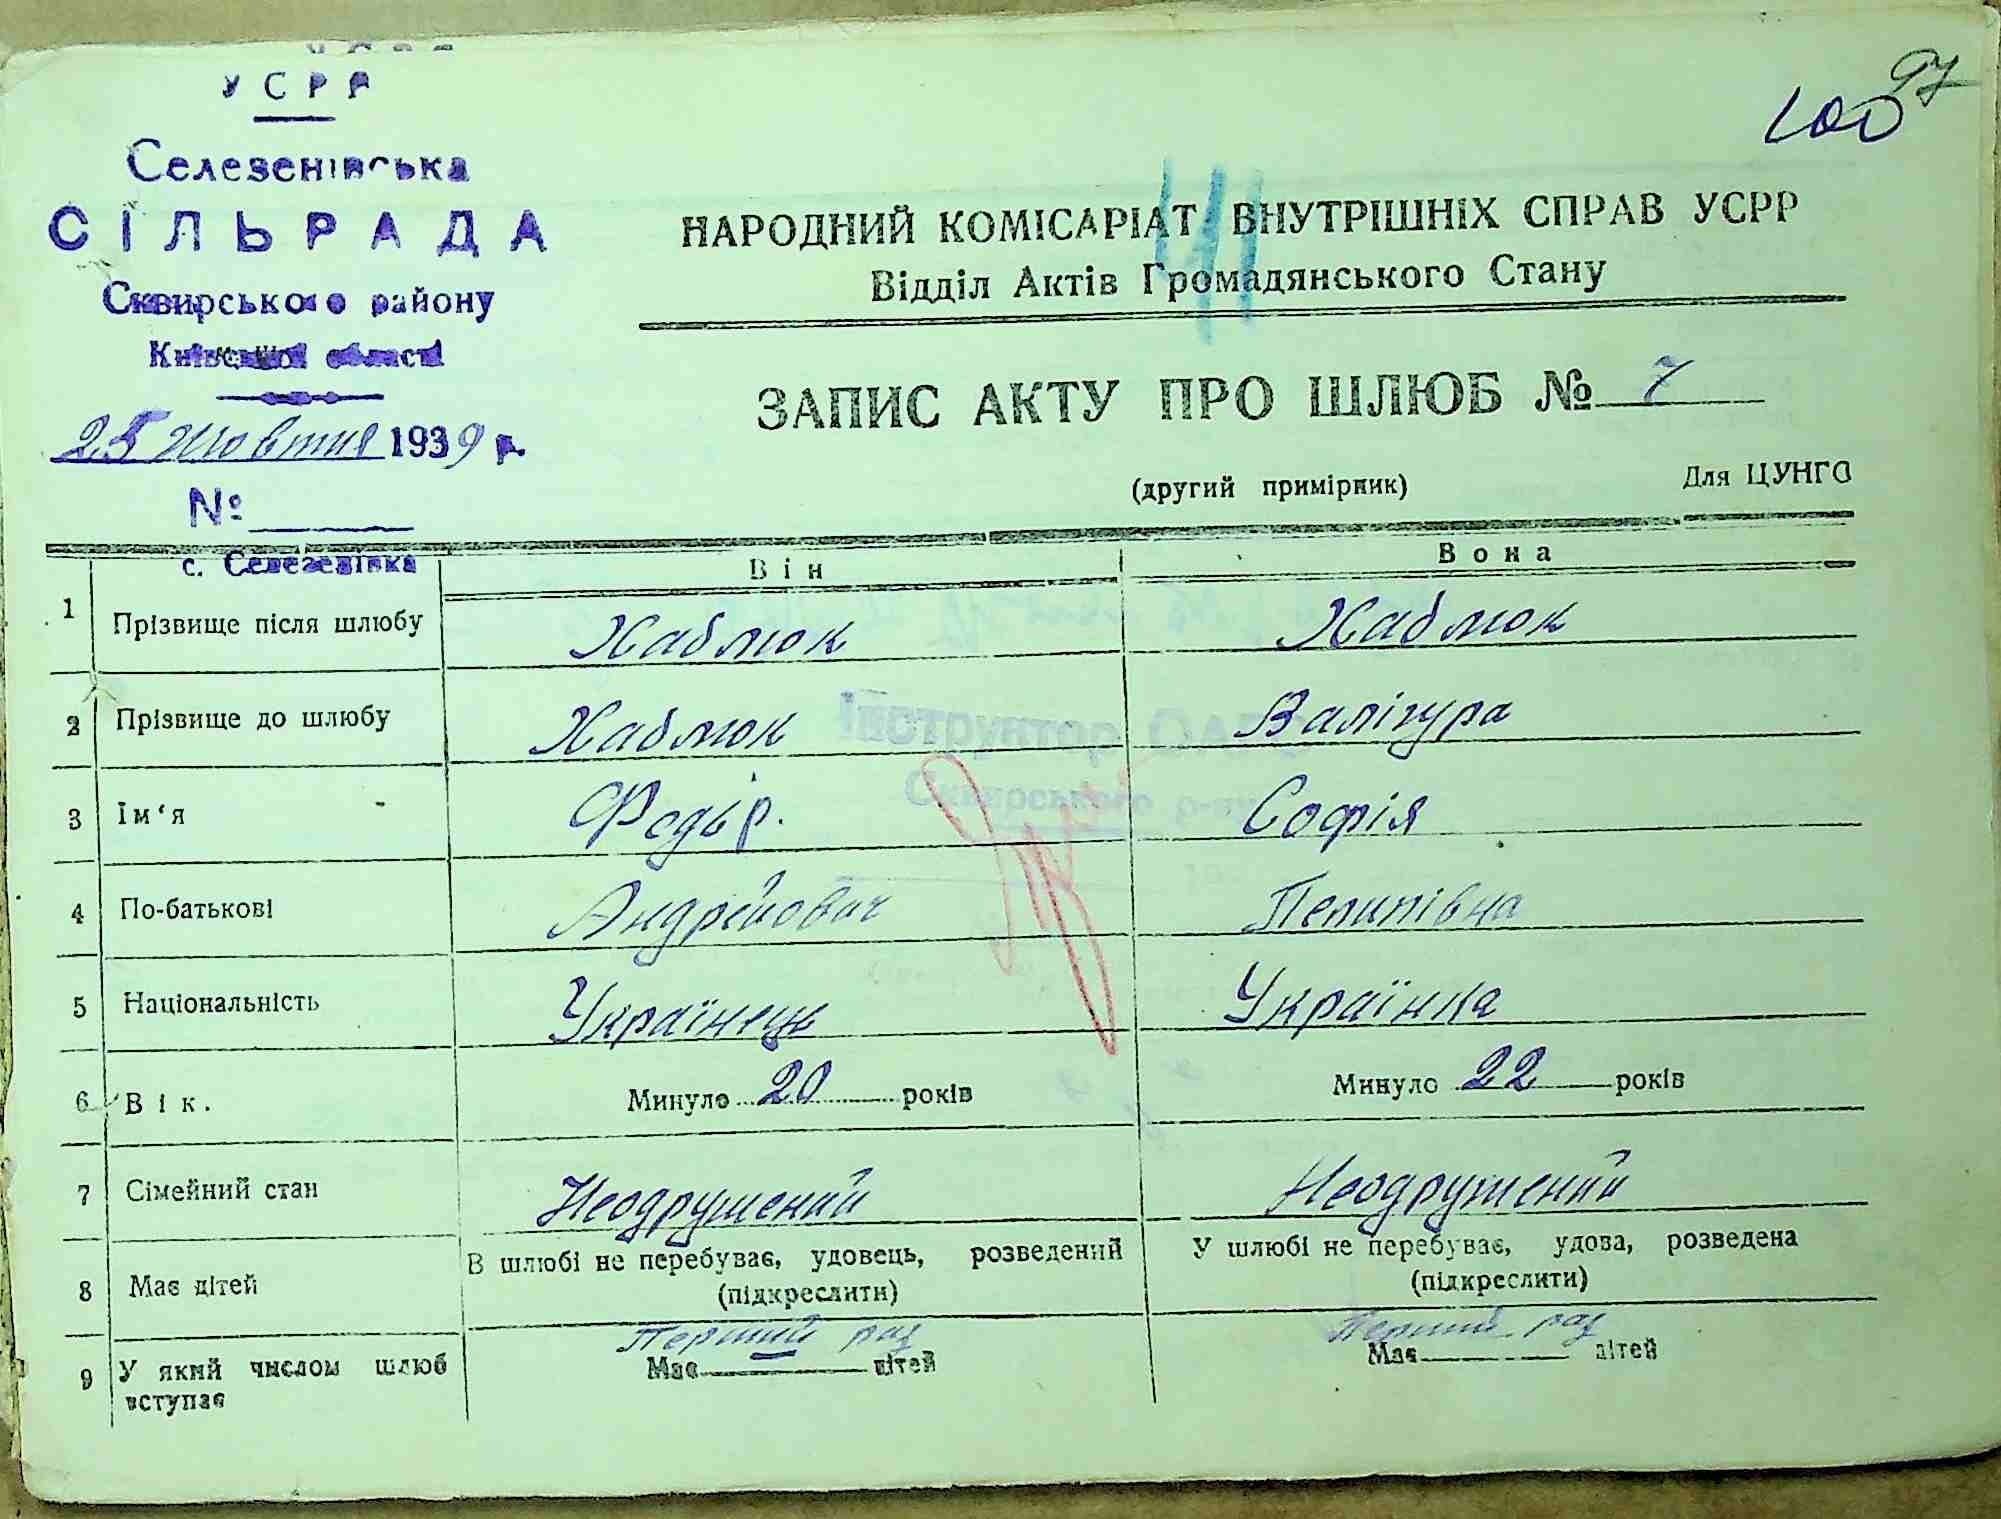 97
100
УСРР
Селезенівська
СІЛЬРАДА
Сквирського району
Київської області
25 жовтня 1939 р.
№
с. Селезенівка
НАРОДНИЙ КОМІСАРІАТ ВНУТРІШНІХ СПРАВ УСРР
Відділ Актів Громадянського Стану
ЗАПИС АКТУ ПРО ШЛЮБ № 7
(другий примірник) Для ЦУНГО
Він Вона
1 Прізвище після шлюбу Хаблюк Хаблюк
2 Прізвище до шлюбу Хаблюк Валігура
3 Ім‘я Федьір. Софія
4 По-батькові Андрійович Пелипівна
5 Національність Українець Українка
6 Вік. Минуло 20 років Минуло 22 років
7 Сімейний стан Неодружений Неодружений
В шлюбі не перебуває, удовець, розведений У шлюбі не перебуває, удова, розведена
8 Має дітей (підкреслити) (підкреслити)
Перший раз Перший раз
9 У який числом шлюб вступає Має дітей Має дітей
Інструктор ОАГС
Сквирського р-ну